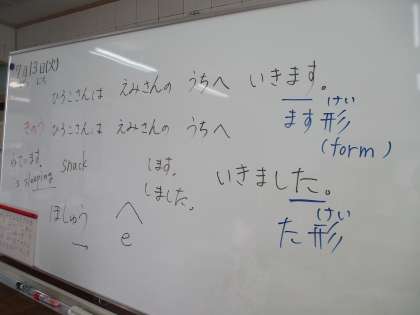 7月13日(火)
にち
ひろこさんは えみさんの うちへ いきます。
ます形
けい
(form)
きのう ひろこさんは えみさんの うちへ
いきました。
た形
けい
ています。
sleeping
snack
します。
しました。
ほしゅう へ
→ e